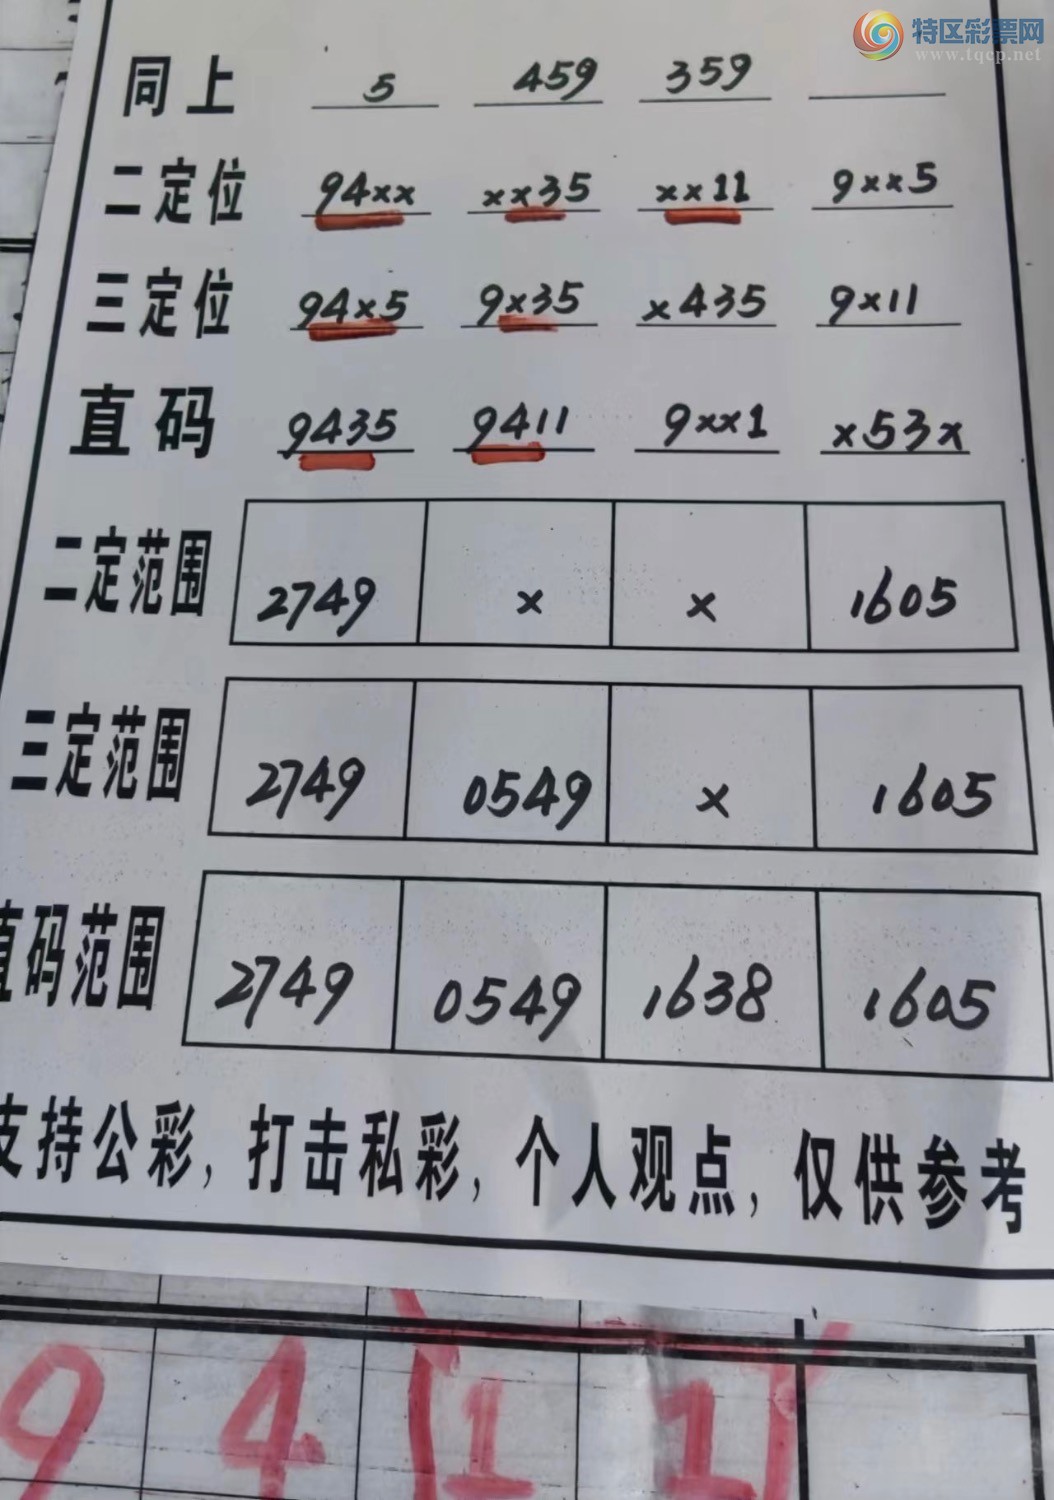 特区彩票网
www.tqcp.net
同上 5 459 359
二定位 94xx xx35 xx11 9xx5
三定位 94x5 9x35 x435 9x11
直码 9435 9411 9xx1 x53x
二定范围 2749 x x 1605
三定范围 2749 0549 x 1605
直码范围 2749 0549 1638 1605
支持公彩,打击私彩,个人观点,仅供参考
9 4 1 1